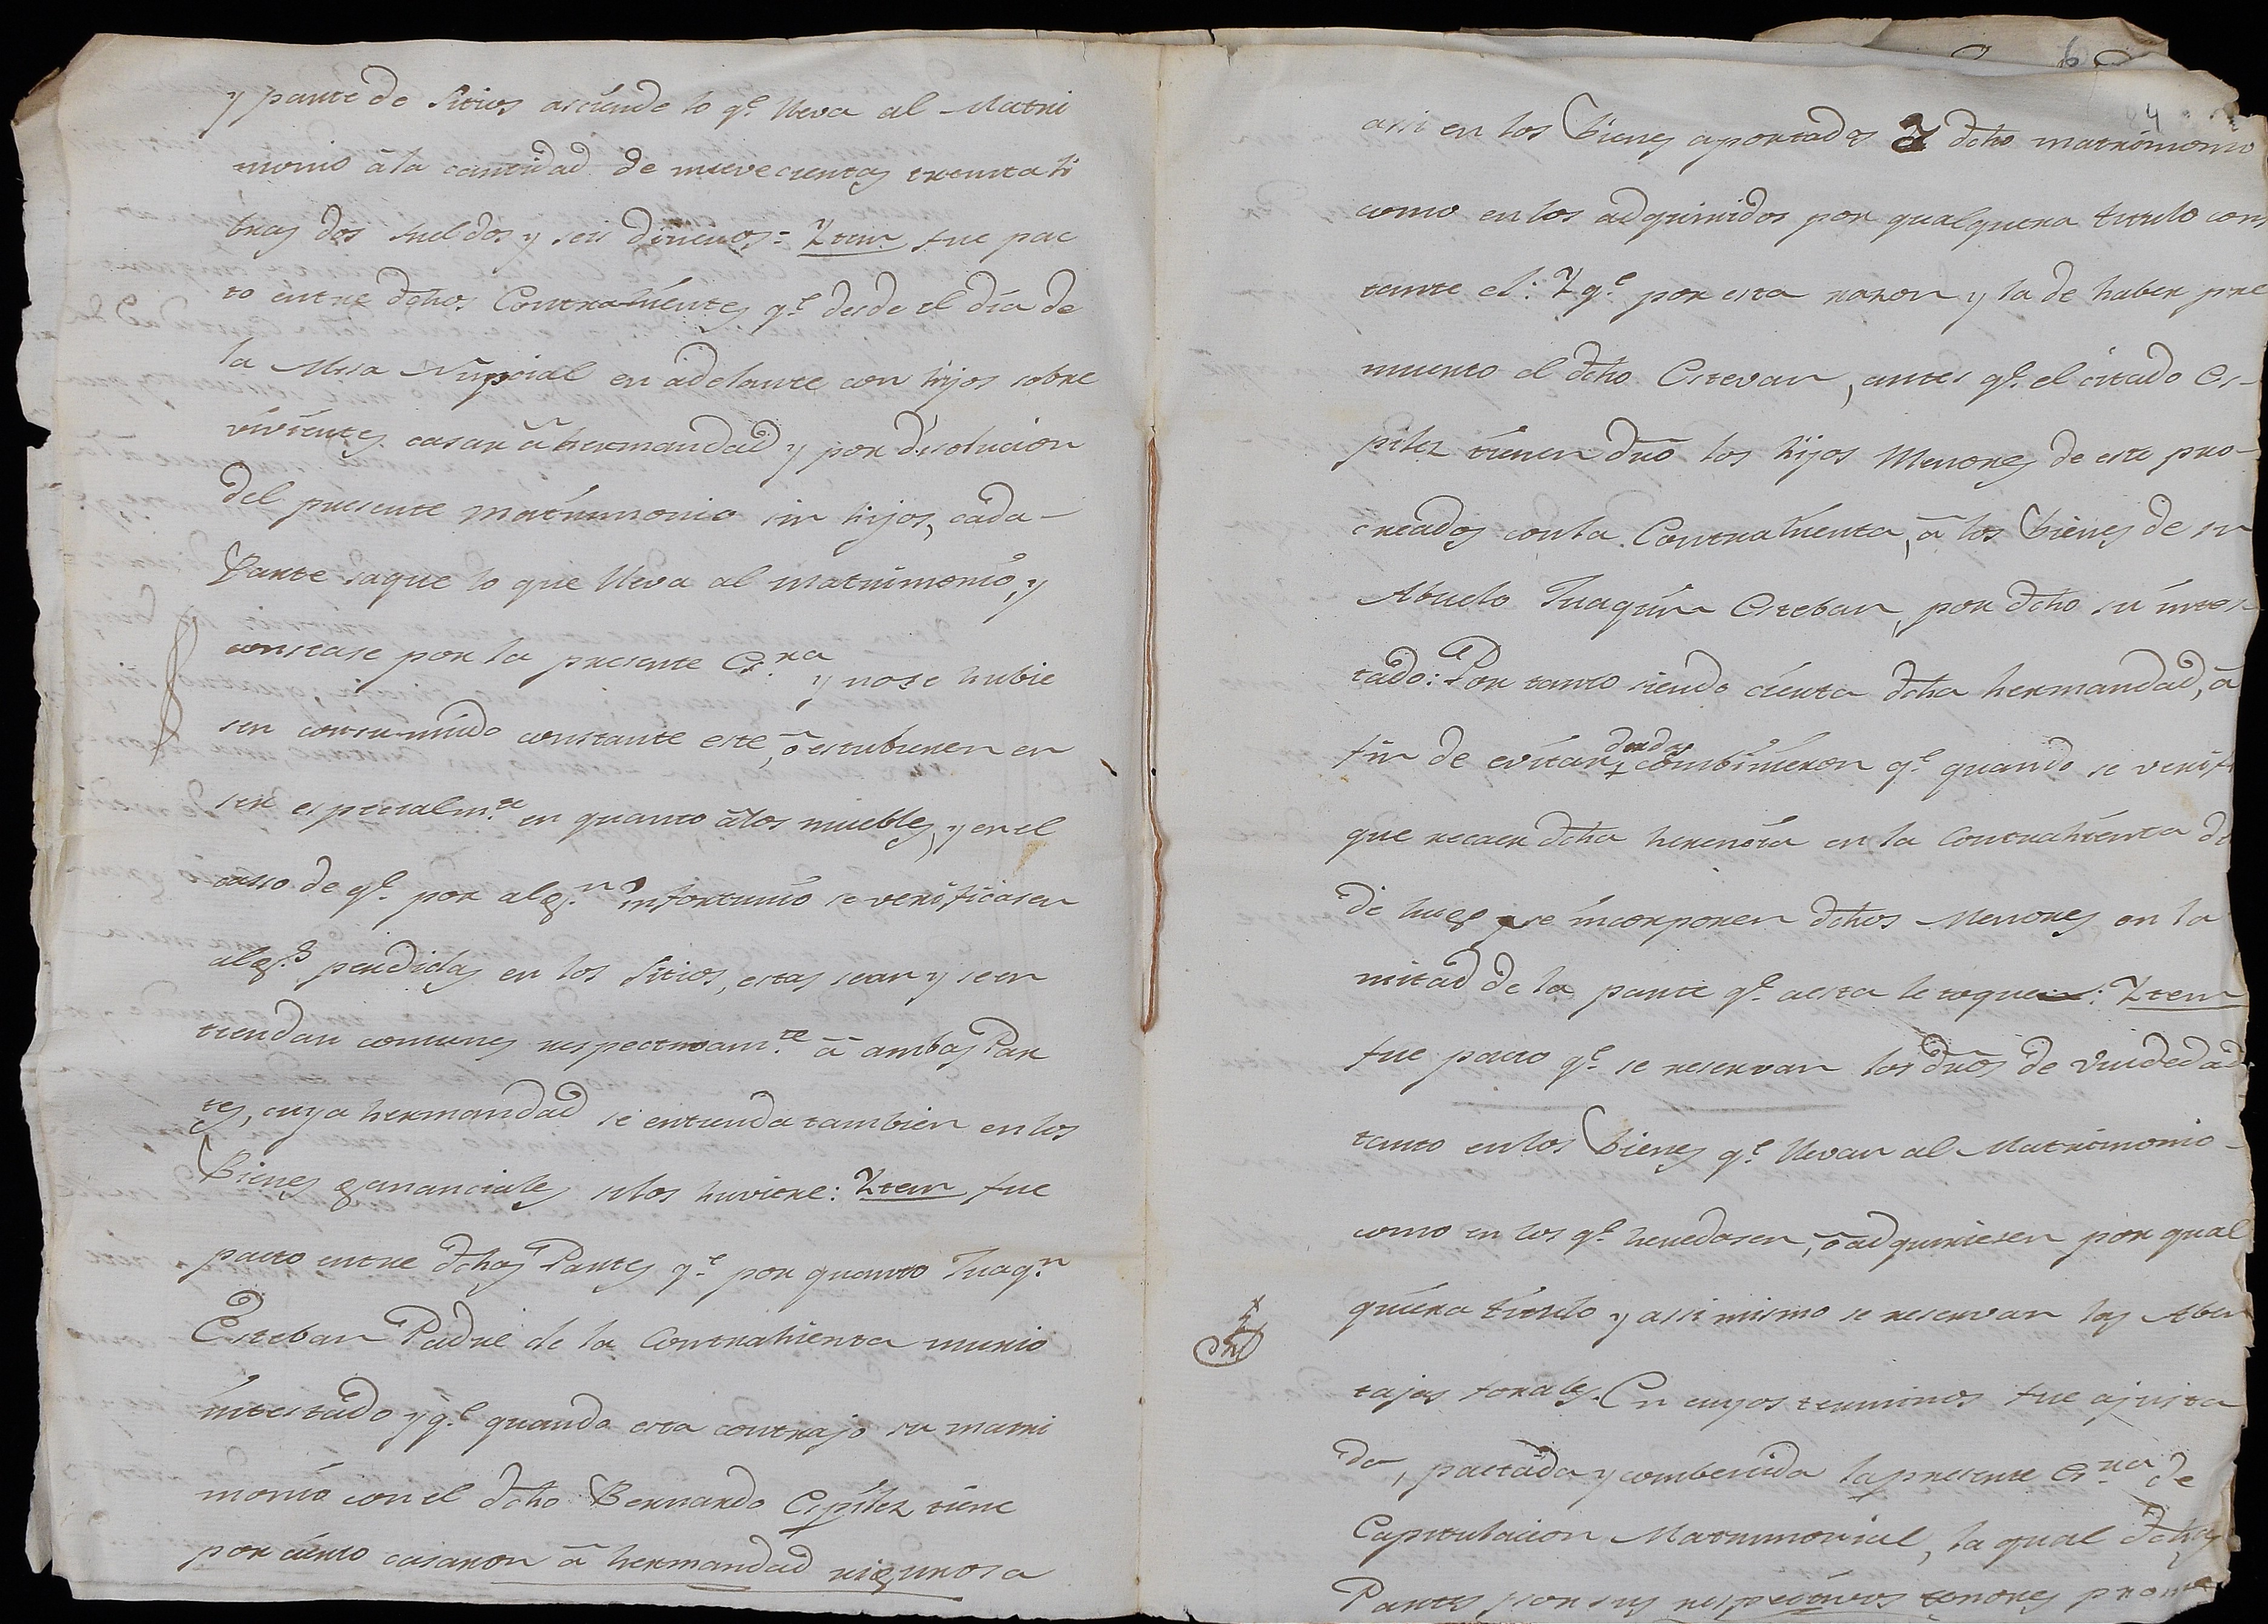 y parte de Sitios asciende lo q.e lleva al Matri
monio â la cantidad de nuevecientas treinta li
bras dos sueldos y seis dineros = Ytem fue pac
to entre dchos Contrahientes q.e desde el dia de
la Misa Nupcial en adelante con hijos sobre
vivientes casan â hermandad y por disolucion
del presente matrimonio sin hijos, cada
Parte saque lo que lleva al matrimonio, y
constase por la presente Es.ra y nose hubie
sen consumido constante este, ô estubiesen en
ser especialm.te en quanto âlos muebles, y en el
caso de q.e por alg.n infortunio se verificasen
alg.s perdidas en los Sitios, estas sean y seen
tiendan comunes respectivam.te â ambas Par
tes, cuya hermandad se entienda tambien en los
Bienes gananciales silos huviere: Ytem fue
pacto entre dchas Partes q.e por quanto Juaq.n
Esteban Padre de la Contrahienta murio
intestado y q.e quando esta contrajo su matri
monio con el dcho Bernardo Espilez tiene
por cierto casaron â hermandad rigurosa
64
assi en los Bienes aportados â dcho matrimonio
como en los adquiridos por qualquiera titulo cons
tante el: Y q.e por esta razon y la de haber pre
muerto el dcho Estevan, antes q.e el citado Es-
pilez tienen dro los hijos Menores de este pro-
creados con la Contrahienta, â los Bienes de su
Abuelo Juaquin Esteban, por dcho su intes
tado: Por tanto siendo cierta dcha hermandad, â
dudas
fin de evitar + combinieron q.e quando se verifi
que recaer dcha herencia en la Contrahienta des
de luego se incorporen dchos Menores en la
mitad de la parte q.e aesta le toque: Ytem
fue pacto q.e se reservan los dros de Viudedad
tanto en los Bienes q.e llevan al Matrimonio-
como en los q.e heredasen, ô adquiriesen por qual
quiera titulo y assi mismo se reservan las Aben
tajas forales. En cuyos terminos fue ajusta
da, pactada y combenida la presente Es.ra de
Capitulacion Matrimonial, la qual dchas
Partes y con sus respectivos tenores prome